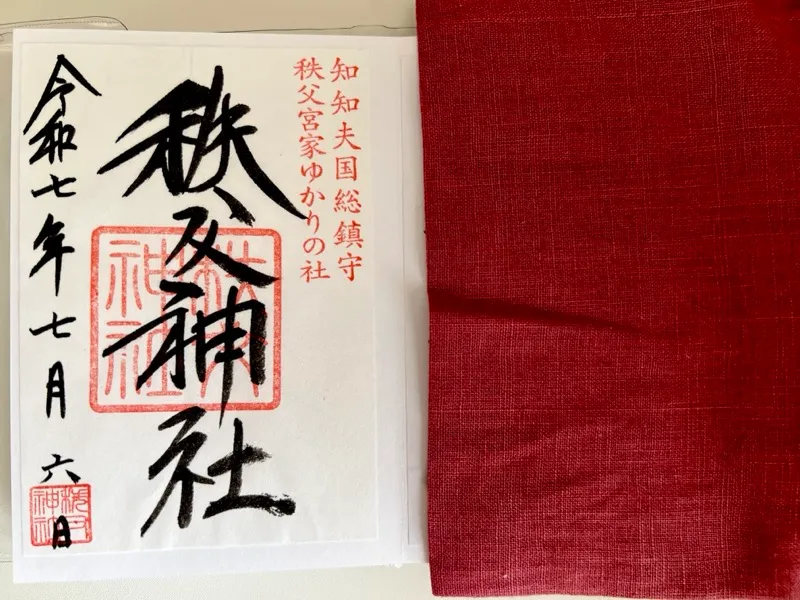 知知夫国総鎮守
秩父宮家ゆかりの社
秩父神社
秩父神社
令和七年七月六日
秩父神社